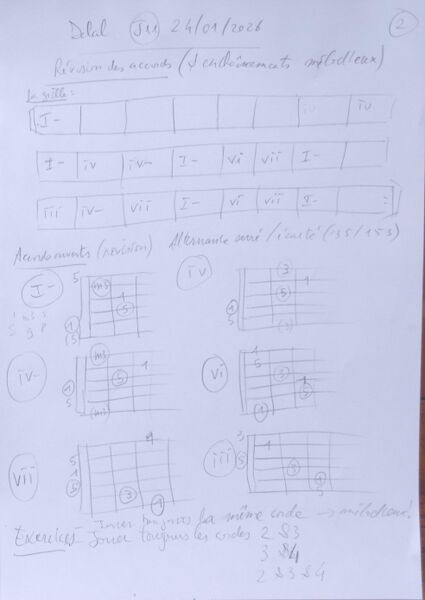 Delal J11 24/01/2026 2
Révision des accords (+ enchaînements mélodieux)
La grille:
I- iv iv
I- iv iv- I- vi vii I-
iii iv- vii I- vi vii I-
Accordements (révision) Alternance serré / écarté (135/153)
I- 5 m3 1 5 1 5
iv 3 1 5 1 5 (3)
1 m3 5
5 8 P
iv- m3 1 5 1 5 m3
vi 1 5 3 5 1
vii 5 1 5 3 1
iii 3 5 1 3 1 5
Jouer toujours la même corde → mélodieux!
Exercices Jouer toujours les cordes 2 & 3
3 & 4
2 & 3 & 4